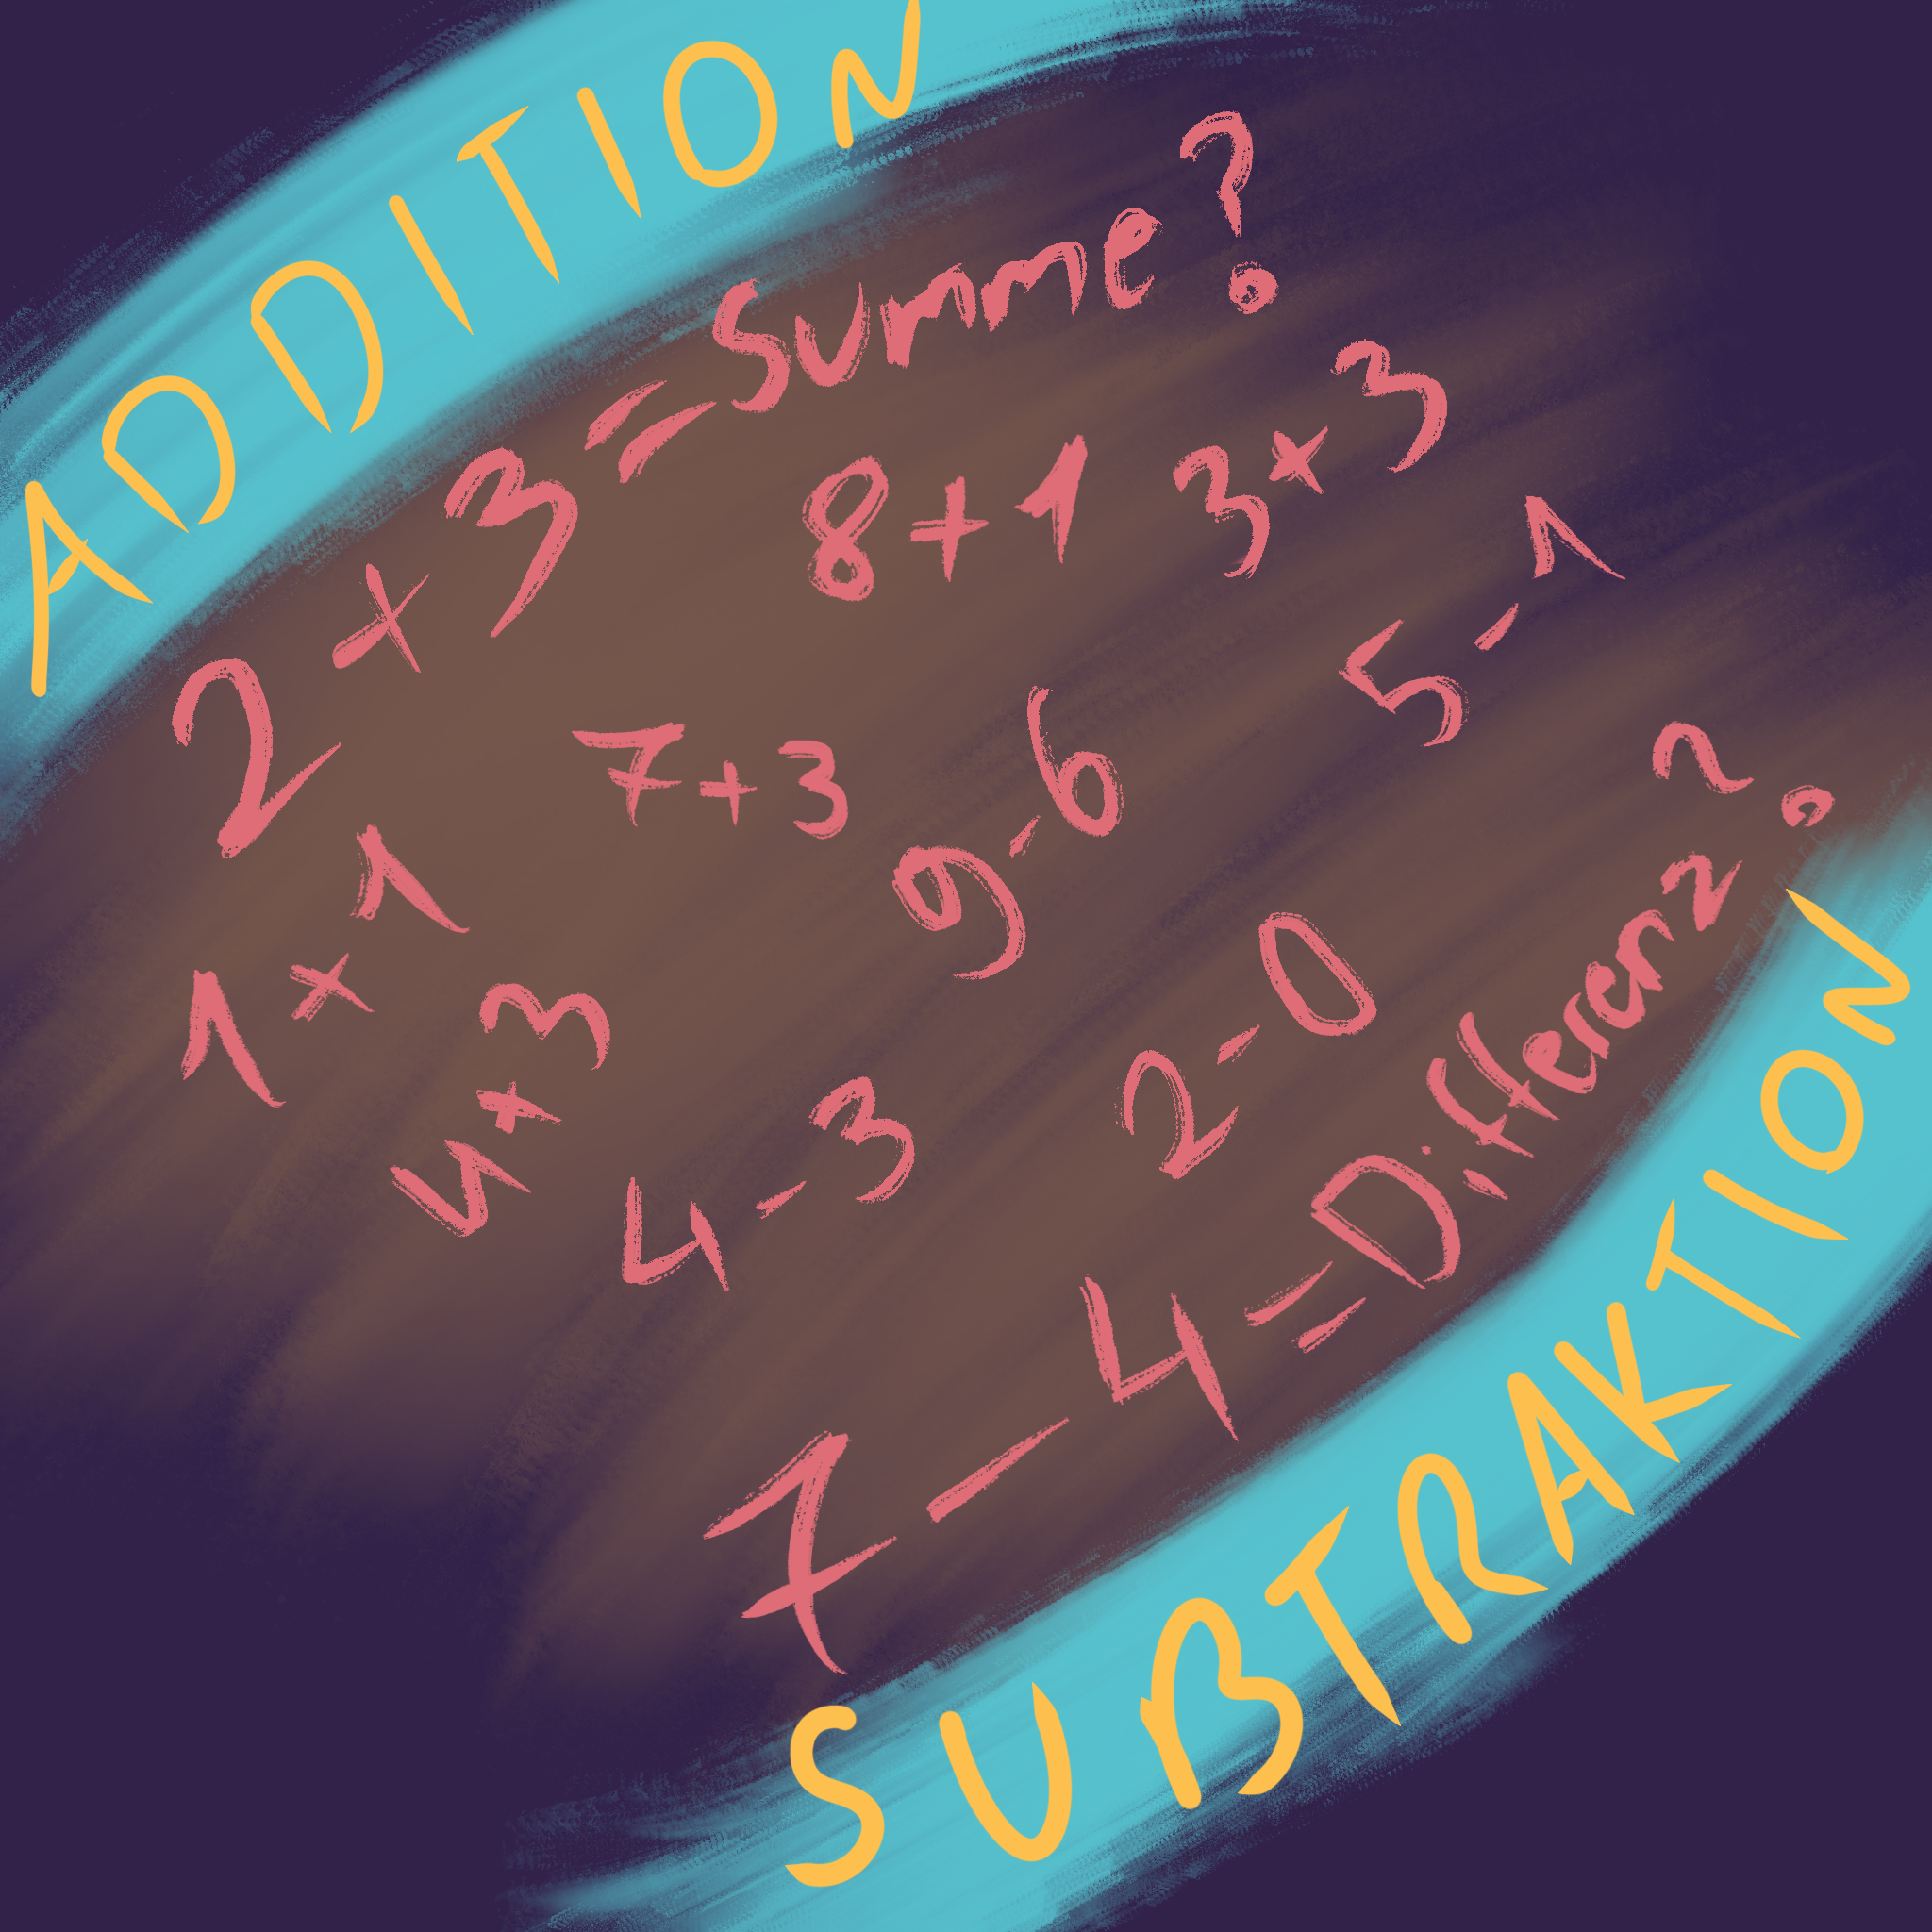 ADDITION
2+3=Summe?
8+1
3+3
5-1
7+3
9-6
1+1
4+3
4-3
2-0
7-4=Differenz?
SUBTRAKTION